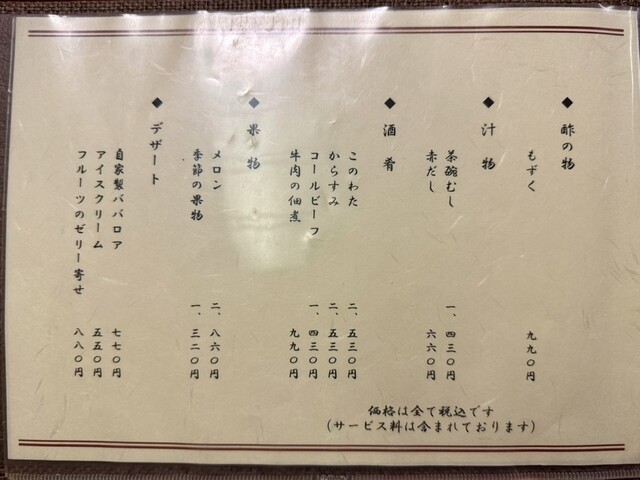 ◆ 酢の物
もずく 九九〇円
◆ 汁物
茶碗むし 一、四三〇円
赤だし 六六〇円
◆ 酒肴
このわた 二、五三〇円
からすみ 二、五三〇円
コールビーフ 一、四三〇円
牛肉の佃煮 九九〇円
◆ 果物
メロン 二、八六〇円
季節の果物 一、三二〇円
◆ デザート
自家製ババロア 七七〇円
アイスクリーム 五五〇円
フルーツのゼリー寄せ 八八〇円
価格は全て税込です
(サービス料は含まれております)